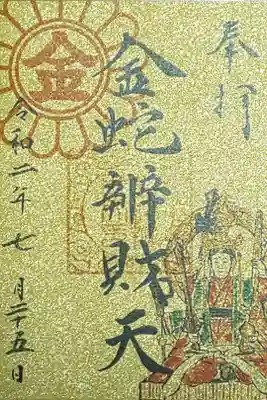 奉拝
金
金蛇辨財天
令和二年七月二十五日